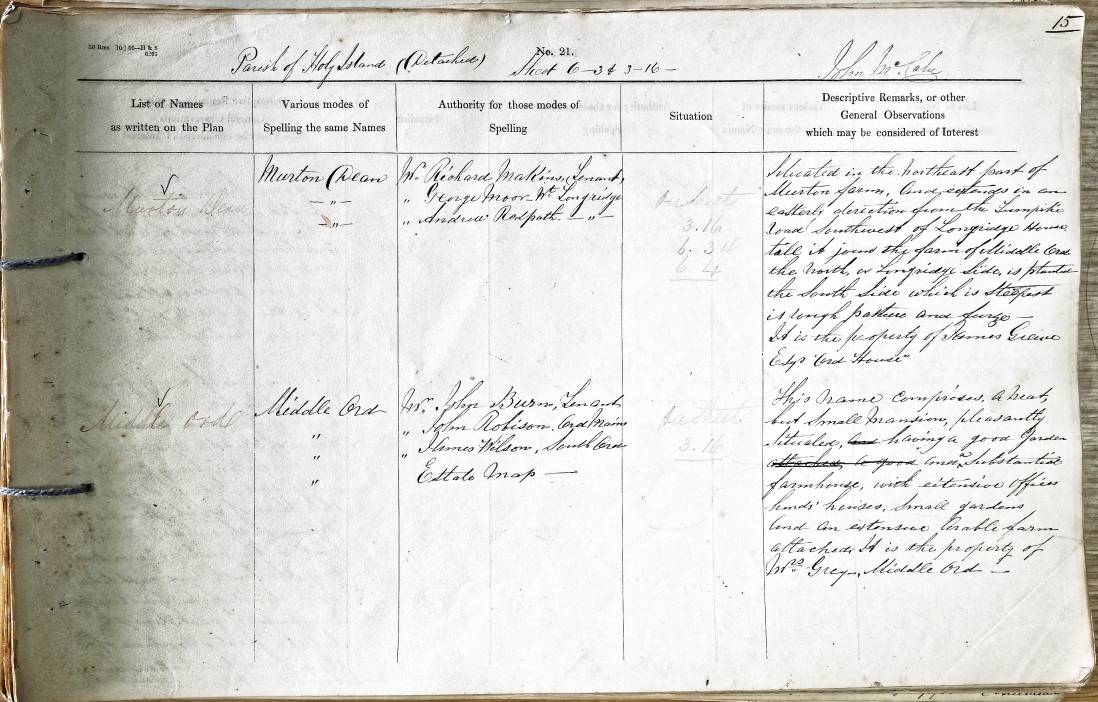 15
No. 21.
Parish of Holy Island (Detached)
Sheet 6-3 & 3-16 -
John McCabe
List of Names
as written on the Plan
Various modes of
Spelling the same Names
Authority for those modes of
Spelling
Situation
Descriptive Remarks, or other
General Observations
which may be considered of Interest
Murton Dean
Murton Dean
- „ -
- „ -
Mr. Richard Makins, Tenant,
„ George Moor Wt. Longridge
„ Andrew Redpath - „ -
On Sheets
3.16
6.3 &
6.4
Situated in the Northeast part of
Murton farm, and extends in an
easterly direction from the Turnpike
road Southwest of Longridge House
till it joins the farm of Middle Ord
the North, or Longridge Side, is planted
the South Side which is Steepest
is rough pasture and furze -
It is the property of James Grieve
Esqr "Ord House"
Middle Ord
Middle Ord
„
„
„
Mr. John Burn, Tenant
„ John Robison, Ord Mains
„ James Wilson, South Ord
Estate Map -
On Sheet
3.16
This name Comprises, a neat,
but Small Mansion, pleasantly
Situated, and having a good Garden
attached, a good and a Substantial
farmhouse, with extensive offices
hinds' houses, Small gardens
and an extensive arable farm
attached, It is the property of
Mrs. Grey, Middle Ord -